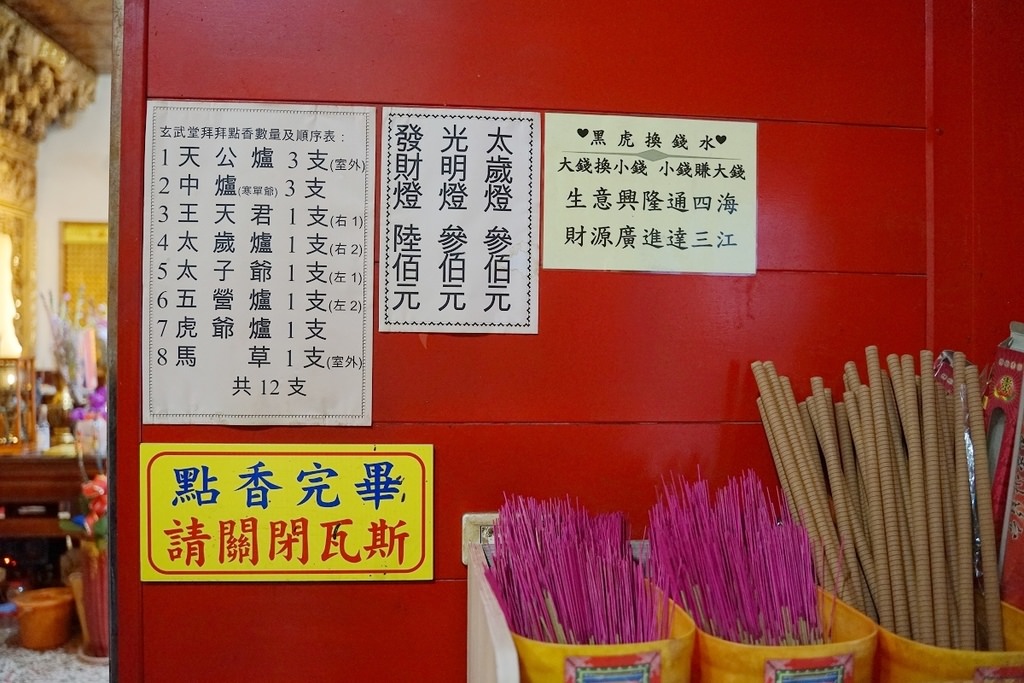 玄武堂拜拜點香數量及順序表：
1 天公爐 3 支(室外)
2 中爐(寒單爺) 3 支
3 王天君 1 支(右 1)
4 太歲爐 1 支(右 2)
5 太子爺 1 支(左 1)
6 五營爐 1 支(左 2)
7 虎爺爐 1 支
8 馬草 1 支(室外)
共 12 支
太歲燈 參佰元
光明燈 參佰元
發財燈 陸佰元
♥黑虎換錢水♥
大錢換小錢 小錢賺大錢
生意興隆通四海
財源廣進達三江
點香完畢
請關閉瓦斯